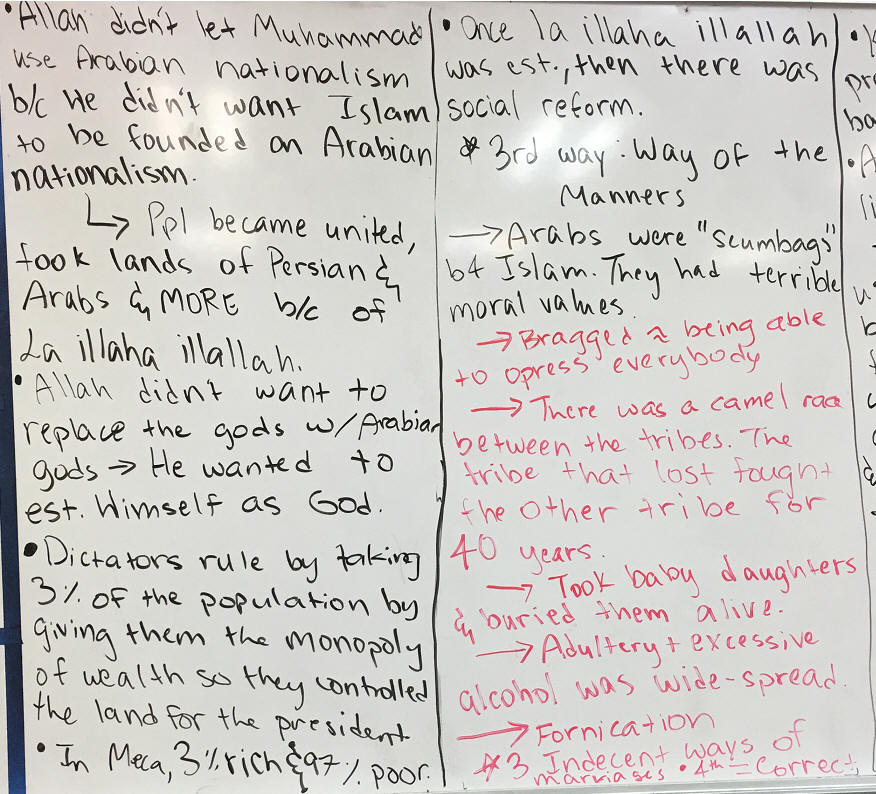 • Allah didn't let Muhammad
use Arabian nationalism
b/c He didn't want Islam
to be founded on Arabian
nationalism.
↳ Ppl became united,
took lands of Persian &
Arabs & MORE b/c of
La illaha illallah.
• Allah didn't want to
replace the gods w/Arabian
gods → He wanted to
est. Himself as God.
• Dictators rule by taking
3% of the population by
giving them the monopoly
of wealth so they controlled
the land for the president
• In Meca, 3% rich & 97% poor.
• Once la illaha illallah
was est., then there was
social reform.
* 3rd way: Way of the
Manners
→ Arabs were "scumbags"
b4 Islam. They had terrible
moral values.
→ Bragged ≈ being able
to opress everybody
→ There was a camel race
between the tribes. The
tribe that lost fought
the other tribe for
40 years.
→ Took baby daughters
& buried them alive.
→ Adultery + excessive
alcohol was wide-spread.
→ Fornication
* 3 Indecent ways of
marriages • 4th = correct